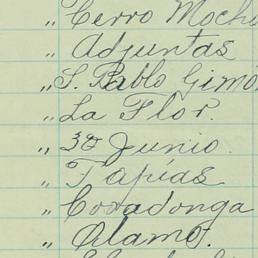 „ Cerro Moch
„ Adjuntas
„ S. Pablo Gimó
„ La Flor.
„ 30 Junio.
„ Tapías
„ Covadonga
„ Alamo.